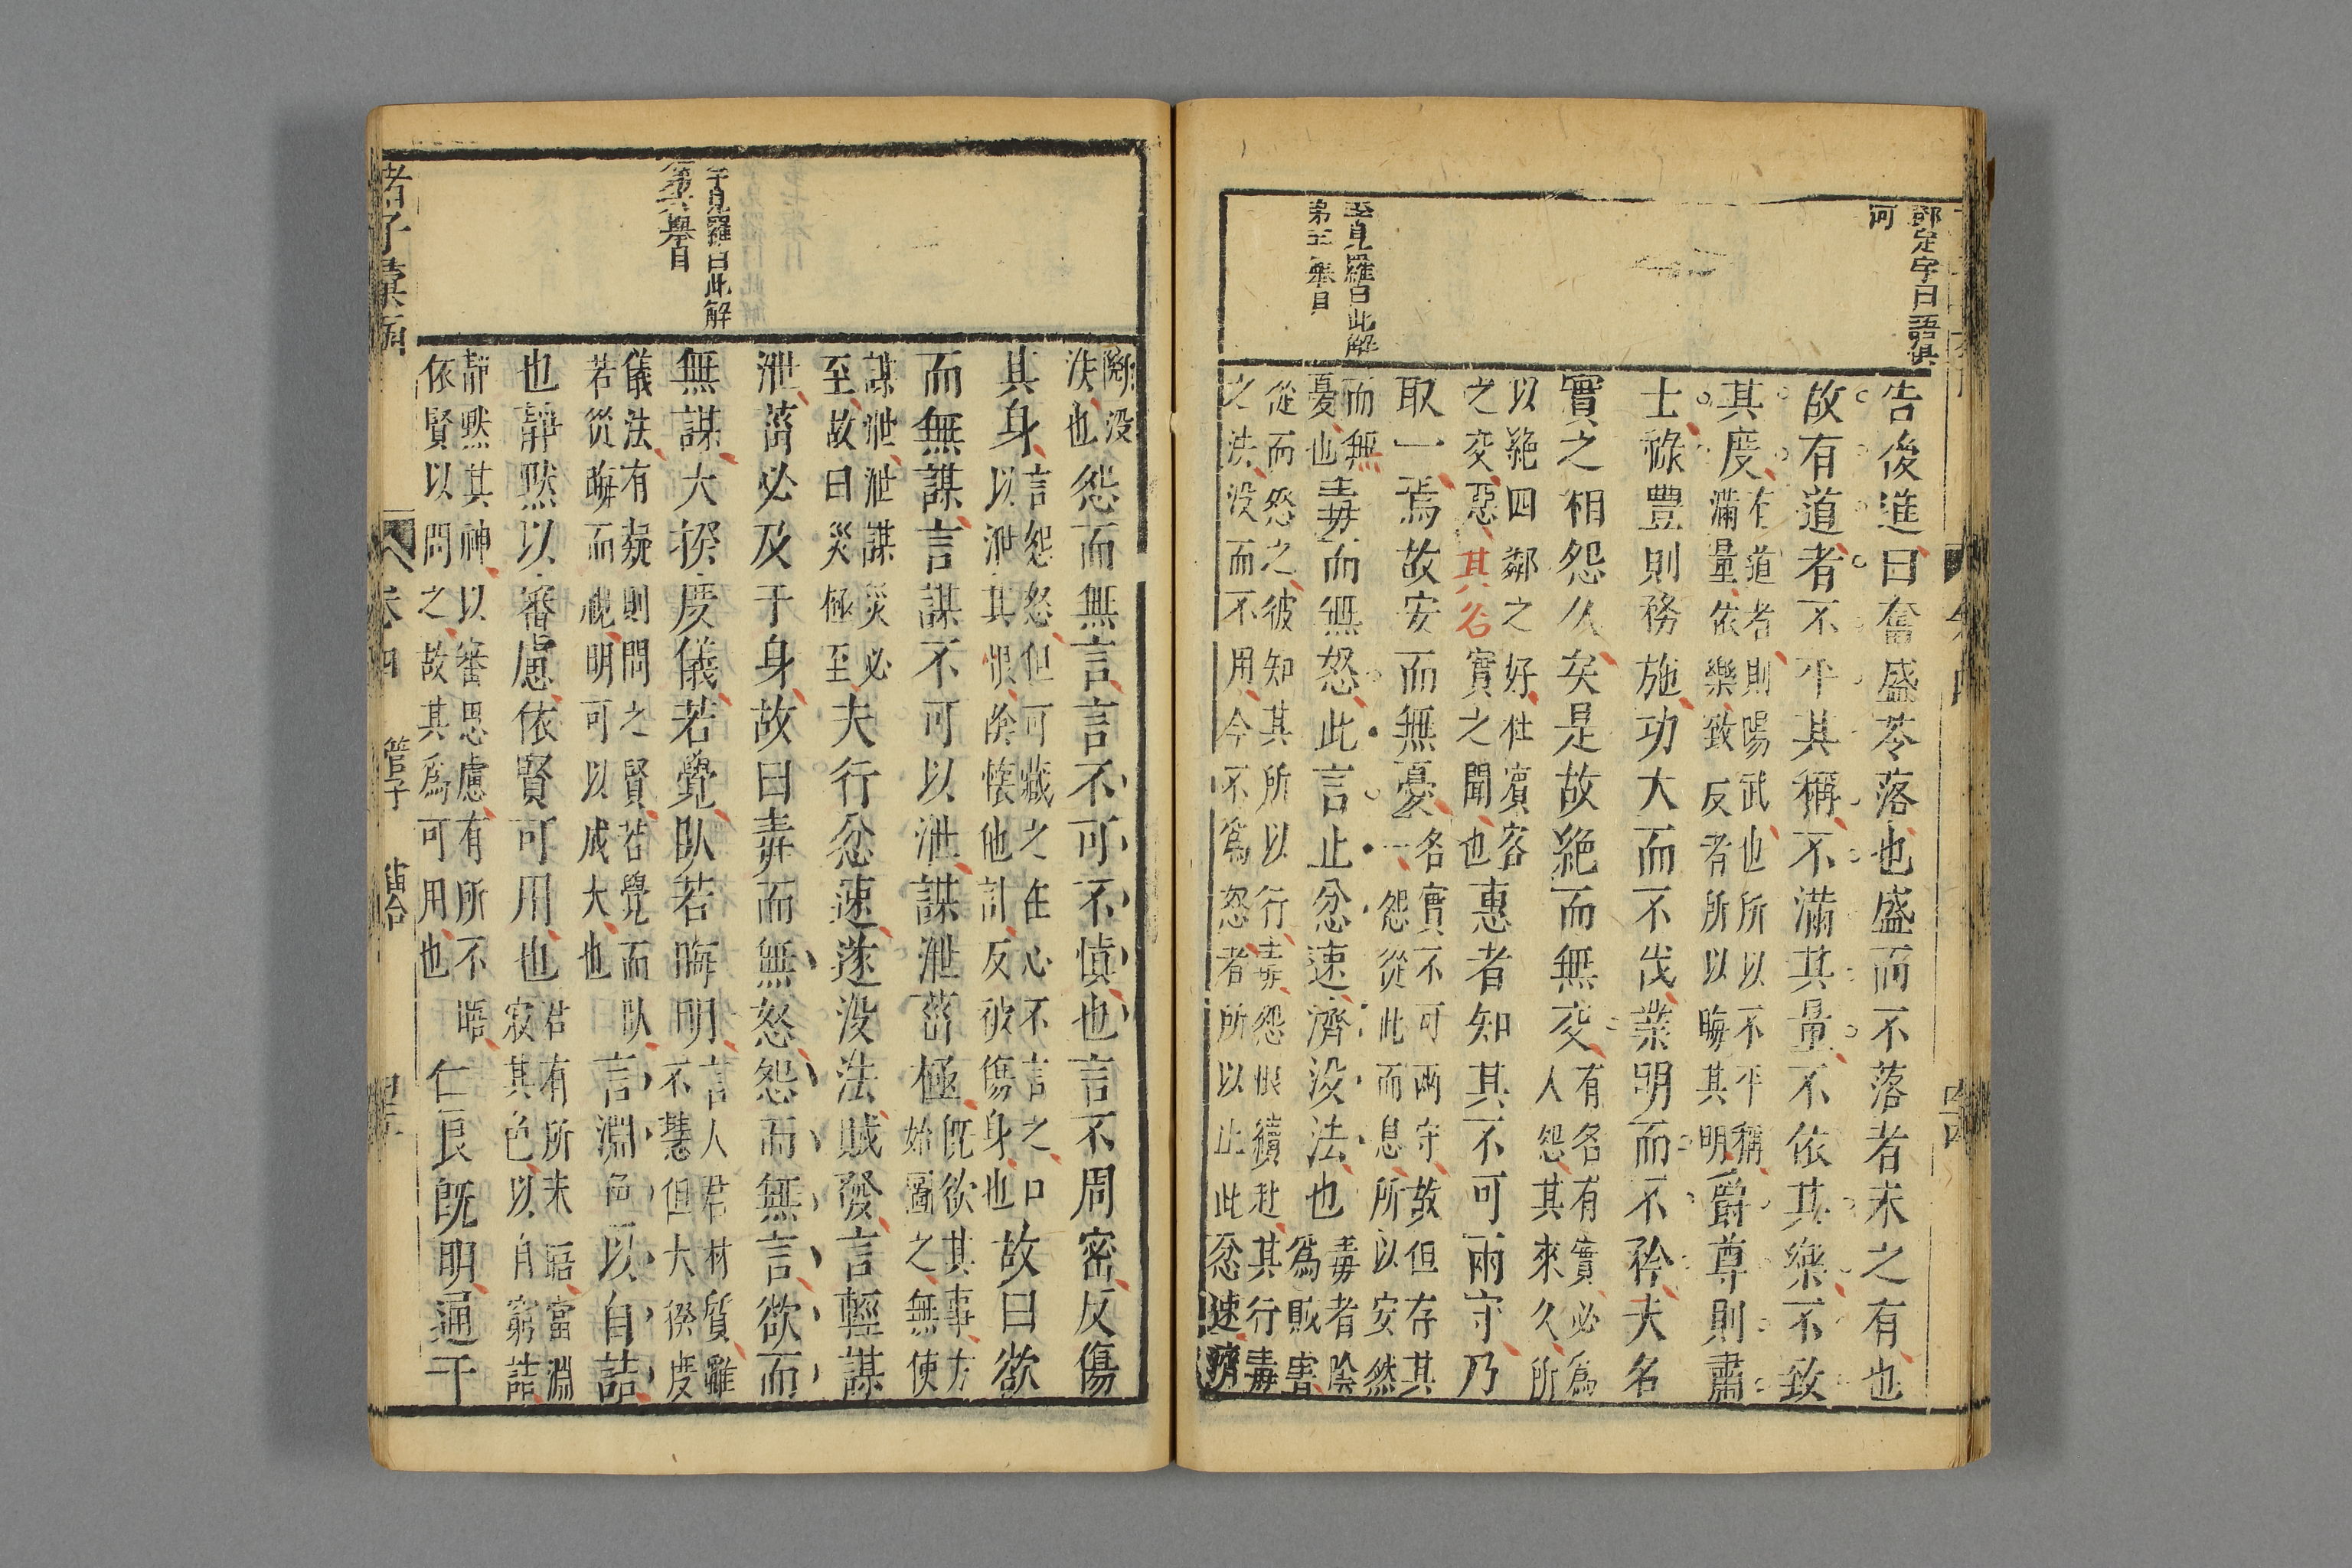 鄧定宇曰語俱
河
告後進曰奮盛苓落也盛而不落者未之有也
故有道者不平其稱不滿其量不依其樂不致
其度在道者則暘武也所以不平稱
滿量依樂致反者所以晦其明爵尊則肅
士祿豐則務施功大而不伐業明而不矜夫名
實之相怨久矣是故絕而無交有名有實必為
人怨其來久所
以絕四鄰之好杜賓客
之交惡其名實之聞也惠者知其不可兩守乃
取一焉故安而無憂名實不可兩守故但存其
一怨從此而息所以安然
而無
憂也毒而無怒此言止忿速濟没法也毒者陰
為賊害
李見羅曰此解
第五舉目
從而怨之彼知其所以行毒怨恨續赴其行毒
之法没而不用今不為怒者所以止此忿速濟
斷没
法也怨而無言言不可不慎也言不周密反傷
其身言怨怒但可藏之在心不言之口
以泄其恨陰懷他計反被傷身也故曰欲
而無謀言謀不可以泄謀泄菑極既欲其事方
始圖之無使
謀泄泄謀災必
至故曰災極至夫行忿速遂没法賊發言輕謀
泄菑必及于身故曰毒而無怒怨而無言欲而
李見羅曰此解
第六舉目
無謀大揆度儀若覺臥若晦明言人君材質雖
不慧但大揆度
儀法有疑則問之賢若覺而臥
若從晦而視明可以成大也言淵色以自詰
也靜默以審慮依賢可用也君有所未晤當淵
寂其色以自窮詰
靜默其神以審思慮有所不晤
依賢以問之故其為可用也仁良既明通于
諸子彙函
卷四
管子